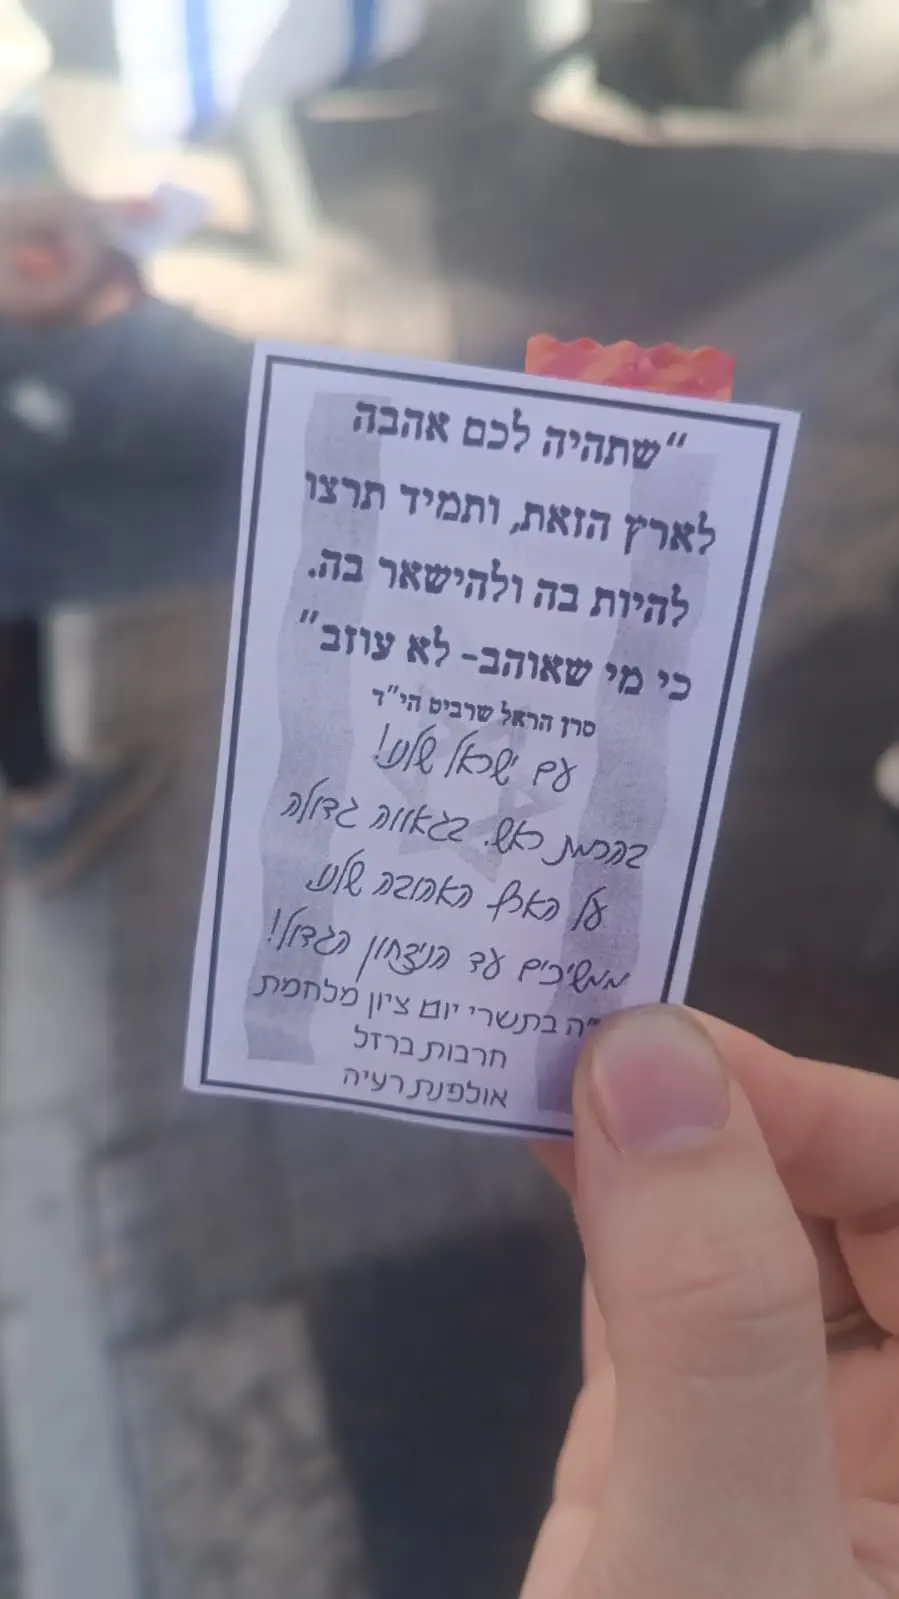 "שתהיה לכם אהבה
לארץ הזאת, ותמיד תרצו
להיות בה ולהישאר בה.
כי מי שאוהב- לא עוזב"
סרן הראל שרביט הי"ד
עם ישראל שלנו!
בהרמת ראש. בגאווה גדולה
על הארץ האהובה שלנו.
ממשיכים עד הניצחון הגדול!
בתשרי יום ציון מלחמת
חרבות ברזל
אולפנת רעיה